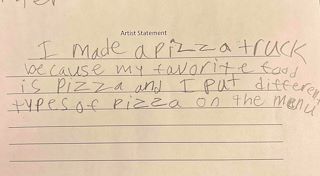 Artist Statement
I made a pizza truck
because my favorite food
is pizza and I put different
types of pizza on the menu